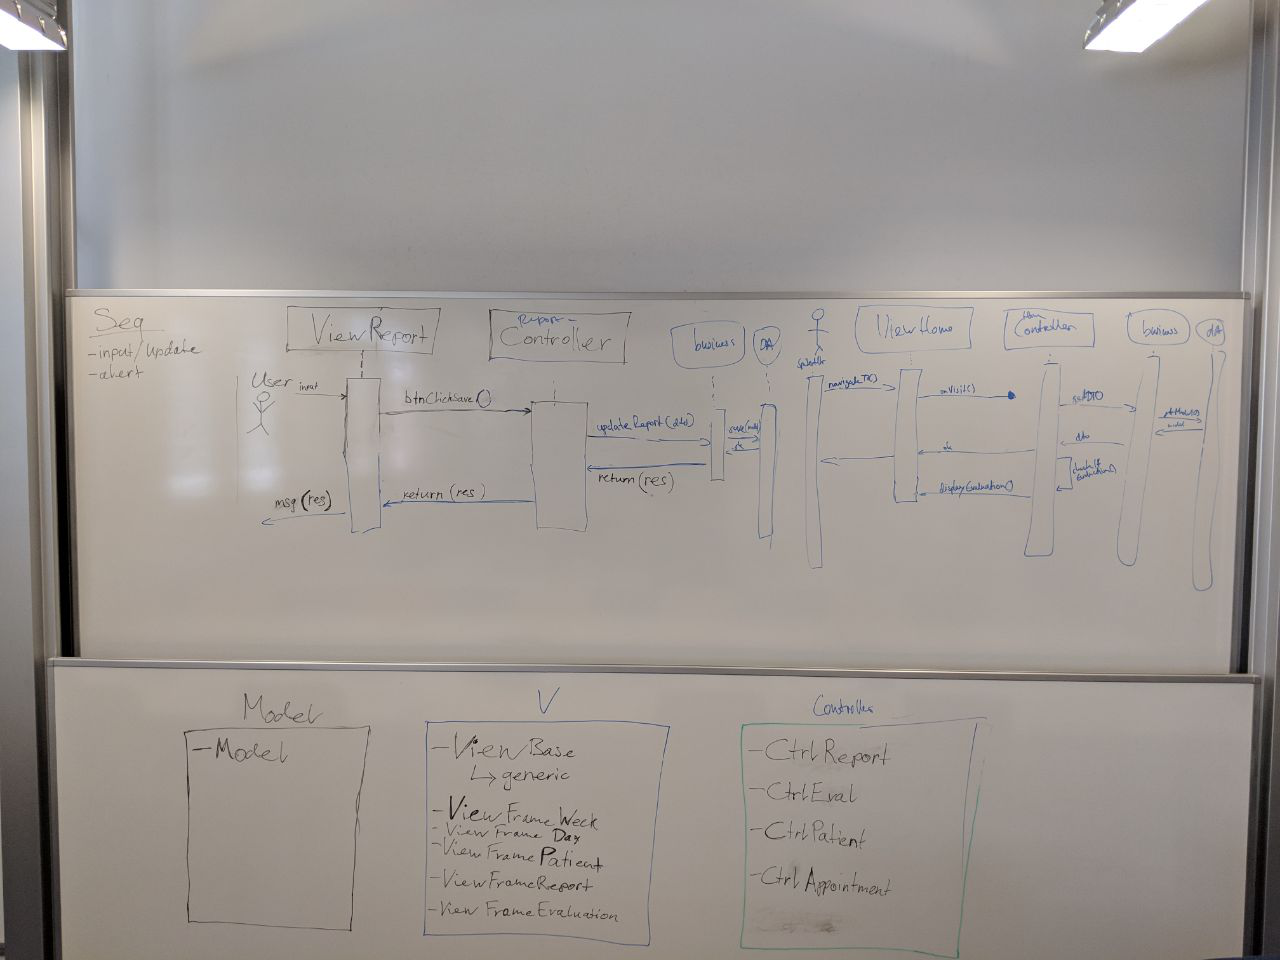 Seq
- input/update
- alert
ViewReport
Report-
Controller
business
DA
ViewHome
Controller
business
dA
User
input
btnClickSave()
updateReport(dto)
save(model)
ok
return(res)
return(res)
msg(res)
navigateTo()
onVisit()
getDTO
model
dto
ok
displayEvaluation()
Model
- Model
V
- ViewBase
↳ generic
- ViewFrameWeek
- ViewFrame Day
- ViewFramePatient
- ViewFrameReport
- View FrameEvaluation
Controller
- CtrlReport
- CtrlEval
- CtrlPatient
- CtrlAppointment